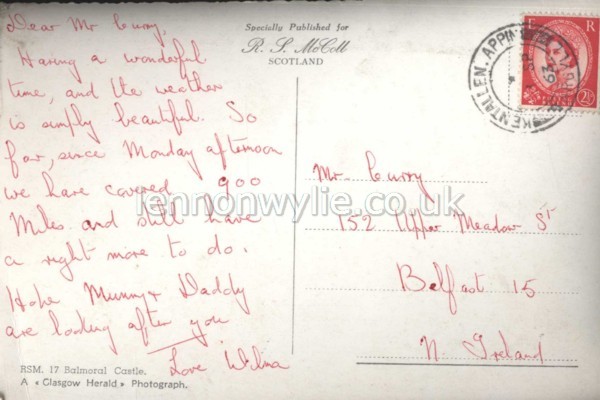 Dear Mr Curry,
Having a wonderful
time, and the weather
is simply beautiful. So
far, since Monday afternoon
we have covered 900
Miles and still have
a right more to do.
Hope Mummy & Daddy
are looking after you
Love Wilma
RSM. 17 Balmoral Castle.
A « Glasgow Herald » Photograph.
Specially Published for
R. S. McColl
SCOTLAND
E R
2½
KENTALLEN. APPIN
Mr Curry
152 Upper Meadow St
Belfast 15
N. Ireland
lennonwylie.co.uk